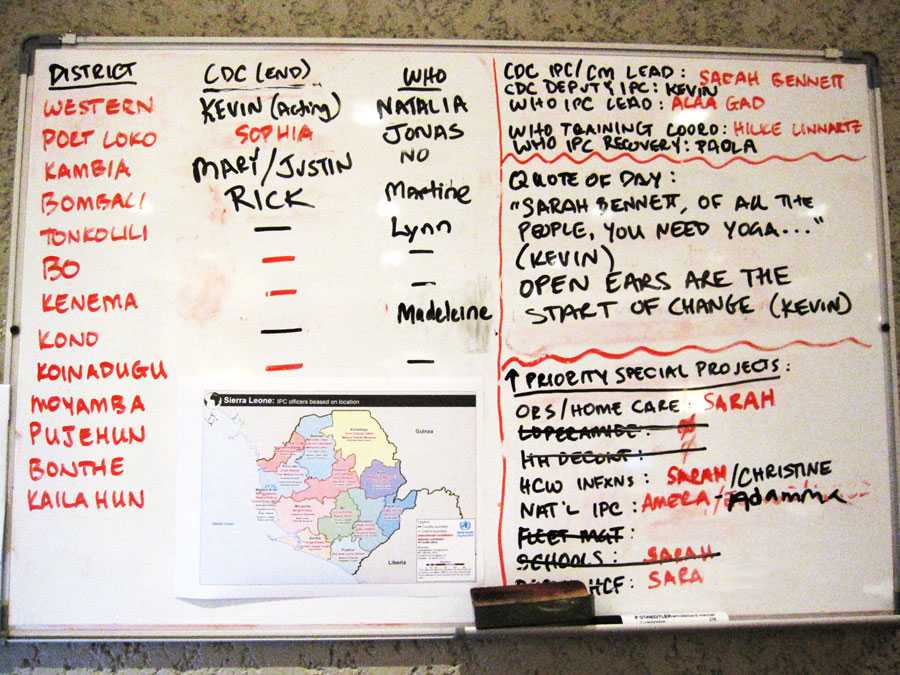 DISTRICT CDC (END) WHO
WESTERN KEVIN (Acting) NATALIA
PORT LOKO SOPHIA JONAS
KAMBIA MARY/JUSTIN NO
BOMBALI RICK Martine
TONKOLILI — Lynn
BO — —
KENEMA — Madeleine
KONO —
KOINADUGU — —
MOYAMBA
PUJEHUN
BONTHE
KAILAHUN
CDC IPC/CM LEAD: SARAH BENNETT
CDC DEPUTY IPC: KEVIN
WHO IPC LEAD: ALAA GAD
WHO TRAINING COORD: HILKE LINNARTZ
WHO IPC RECOVERY: PAOLA
QUOTE OF DAY:
"SARAH BENNETT, OF ALL THE
PEOPLE, YOU NEED YOGA..."
(KEVIN)
OPEN EARS ARE THE
START OF CHANGE (KEVIN)
↑ PRIORITY SPECIAL PROJECTS:
ORS/HOME CARE: SARAH
LOPERAMIDE:
HH DECONT:
HCW INFXNS: SARAH/CHRISTINE
NAT'L IPC: AMERA/
FLEET MGT:
SCHOOLS: SARAH
HCF: SARA
Sierra Leone: IPC officers beased on location
Guinea
Liberia
STAEDTLER